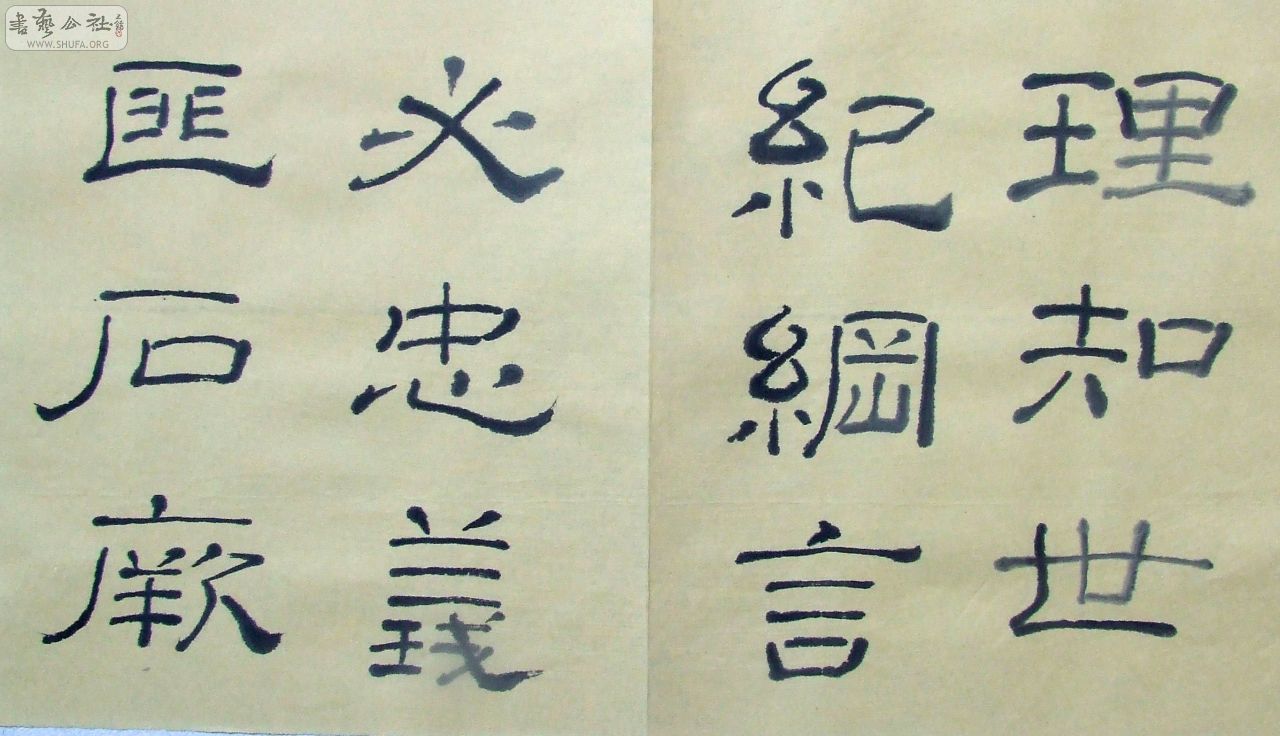 書藝公社
WWW.SHUFA.ORG
理知世
紀綱言
必忠義
匪石厥